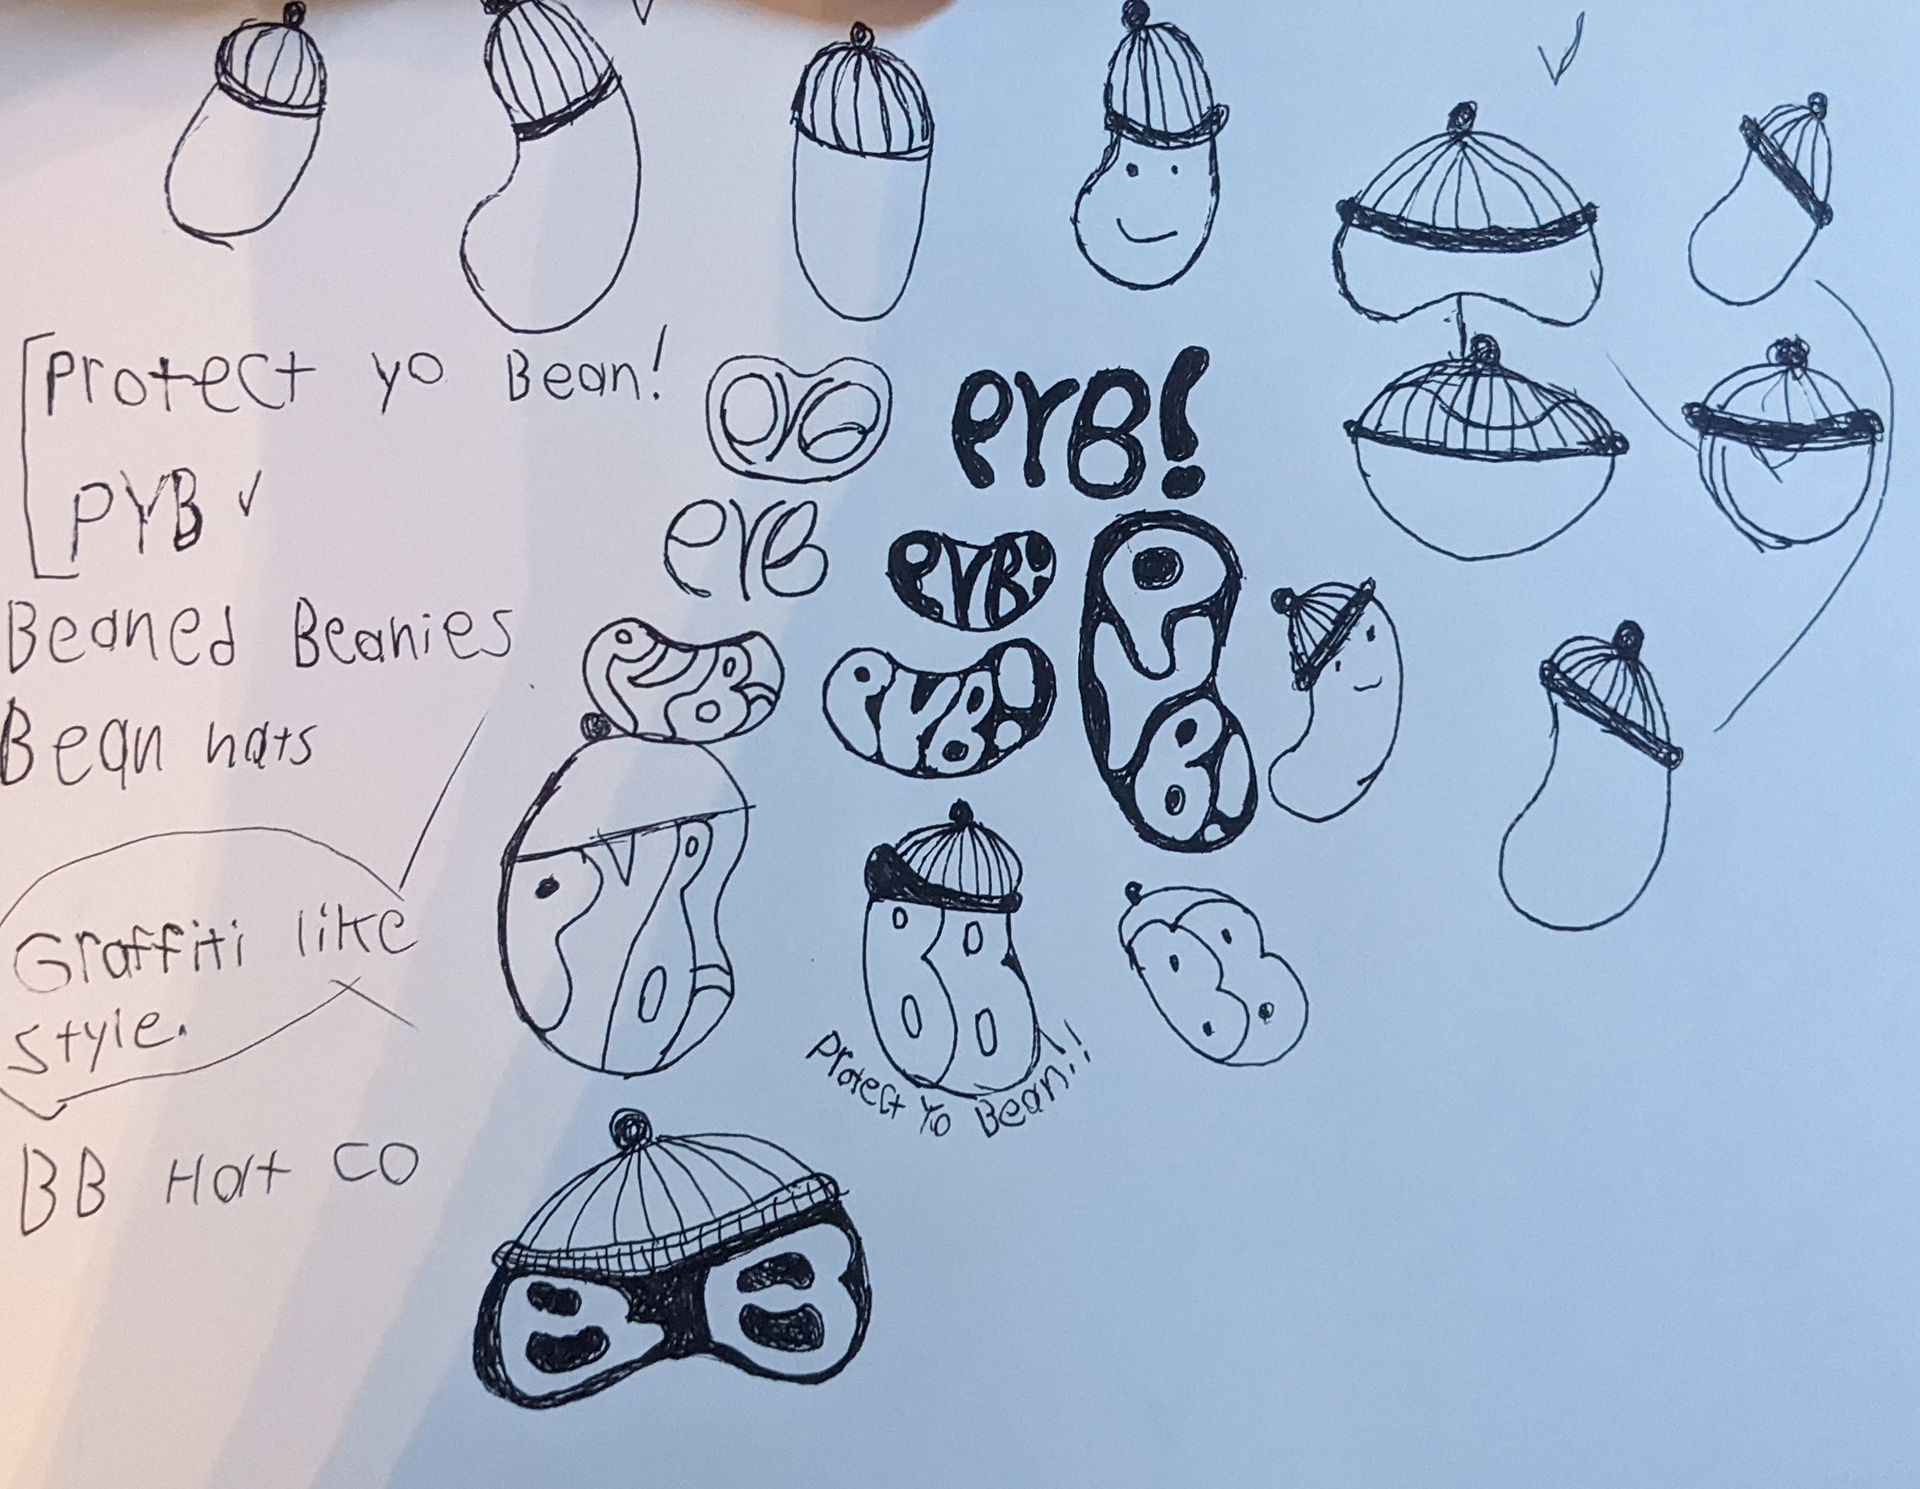 Protect yo Bean!
PYB
PYB
PYB!
PYB
PYB!
Beaned Beanies
PYB
PYB!
PYB!
Bean hats
PYB
BB
BB
Graffiti like
style.
Protect Yo Bean!!
BB Hat CO
BB